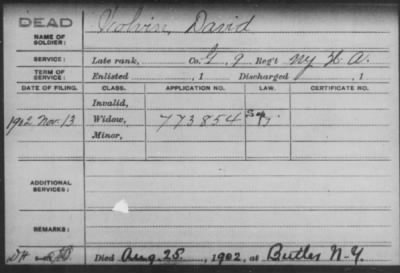 DEAD
NAME OF SOLDIER: Colvin, David
SERVICE: Late rank, Co. L, 9 Reg't NY H A.
TERM OF SERVICE: Enlisted , 1 Discharged , 1
DATE OF FILING. CLASS. APPLICATION NO. LAW. CERTIFICATE NO.
Invalid,
1902 Nov. 13 Widow, 773854
Minor,
ADDITIONAL SERVICES:
REMARKS:
Died Aug. 25, 1902, at Butler N-Y.